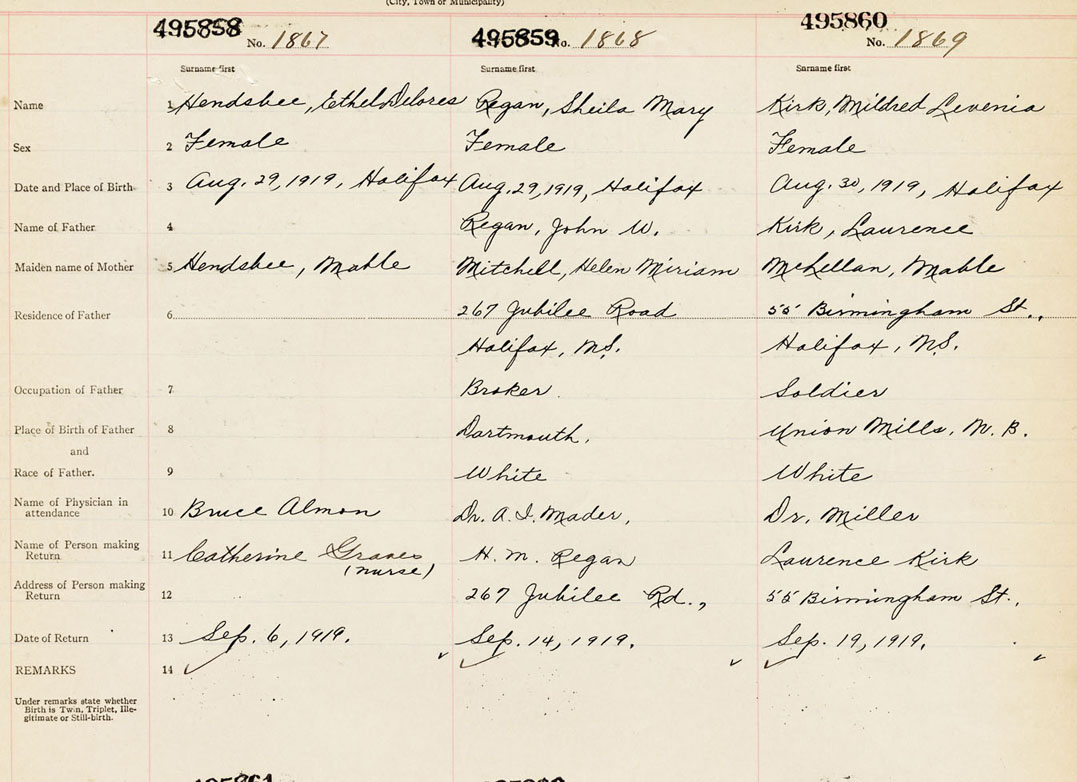 (City, Town or Municipality)
495858 No. 1867 495859 No. 1868 495860 No. 1869
Surname first Surname first Surname first
Name 1 Hendsbee, Ethel Delores Regan, Sheila Mary Kirk, Mildred Levenia
Sex 2 Female Female Female
Date and Place of Birth 3 Aug. 29, 1919, Halifax Aug. 29, 1919, Halifax Aug. 30, 1919, Halifax
Name of Father 4 Regan, John W. Kirk, Laurence
Maiden name of Mother 5 Hendsbee, Mable Mitchell, Helen Miriam McLellan, Mable
Residence of Father 6 267 Jubilee Road 55 Birmingham St.,
Halifax, N.S. Halifax, N.S.
Occupation of Father 7 Broker Soldier
Place of Birth of Father 8 Dartmouth. Union Mills, N. B.
and
Race of Father. 9 White White
Name of Physician in
attendance 10 Bruce Almon Dr. A. I. Mader, Dr. Miller
Name of Person making
Return 11 Catherine Graves H. M. Regan Laurence Kirk
(nurse)
Address of Person making
Return 12 267 Jubilee Rd., 55 Birmingham St.,
Date of Return 13 Sep. 6, 1919. Sep. 14, 1919. Sep. 19, 1919.
REMARKS 14
Under remarks state whether
Birth is Twin, Triplet, Ille-
gitimate or Still-birth.